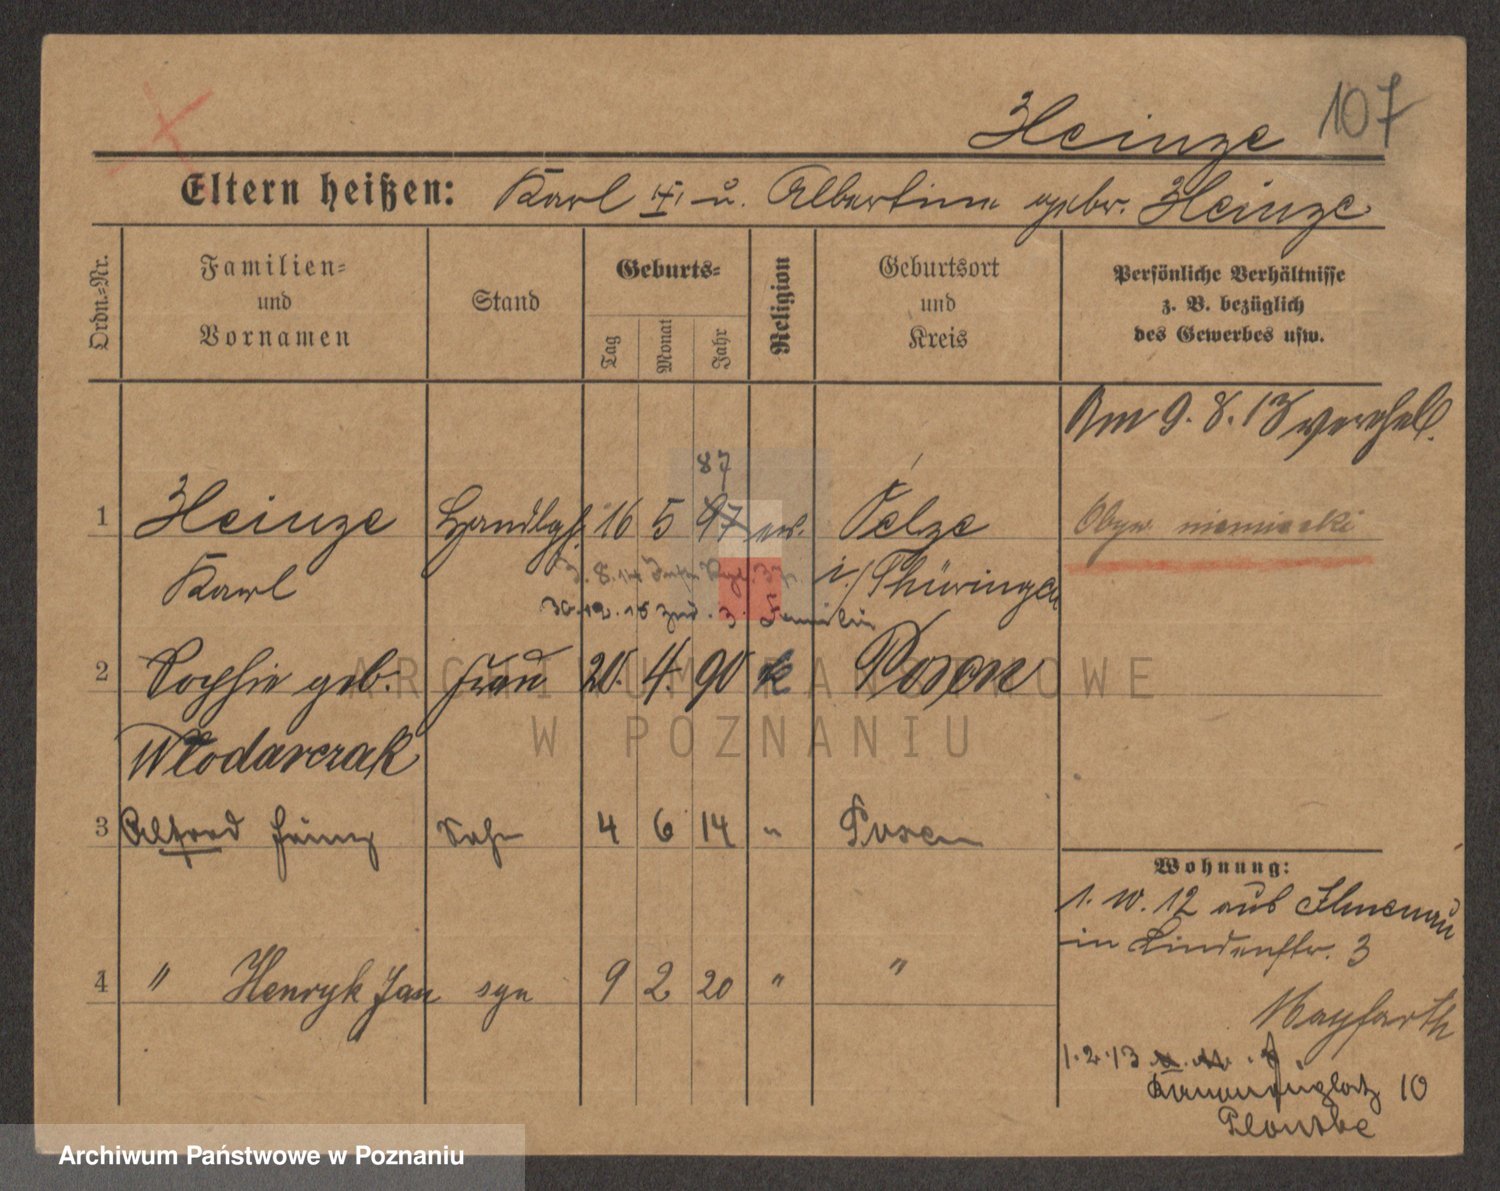 107
Heinze
Eltern heißen: Karl u. Albertine gebr. Heinze
Ordn.=Nr.
Familien=
und
Vornamen
Stand
Geburts=
Tag
Monat
Jahr
Religion
Geburtsort
und
Kreis
Persönliche Verhältnisse
z. B. bezüglich
des Gewerbes usw.
Am 9. 8. 13 verehel.
87
1 Heinze Handlgh. 16 5 97 ev. Pelze
Obyw. niemiecki
Karl
i./Thüringen
2 Sophie geb. Frau 20. 4. 90 k Posen
Włodarczak
3 Alfred Heinz Sohn 4 6 14 " Posen
4 " Henryk Jan syn 9 2 20 " "
Wohnung:
1. 10. 12 aus Ilmenau
in Lindenstr. 3
Mayfarth
1. 2. 13
10
ARCHIWUM PAŃSTWOWE
W POZNANIU
Archiwum Państwowe w Poznaniu